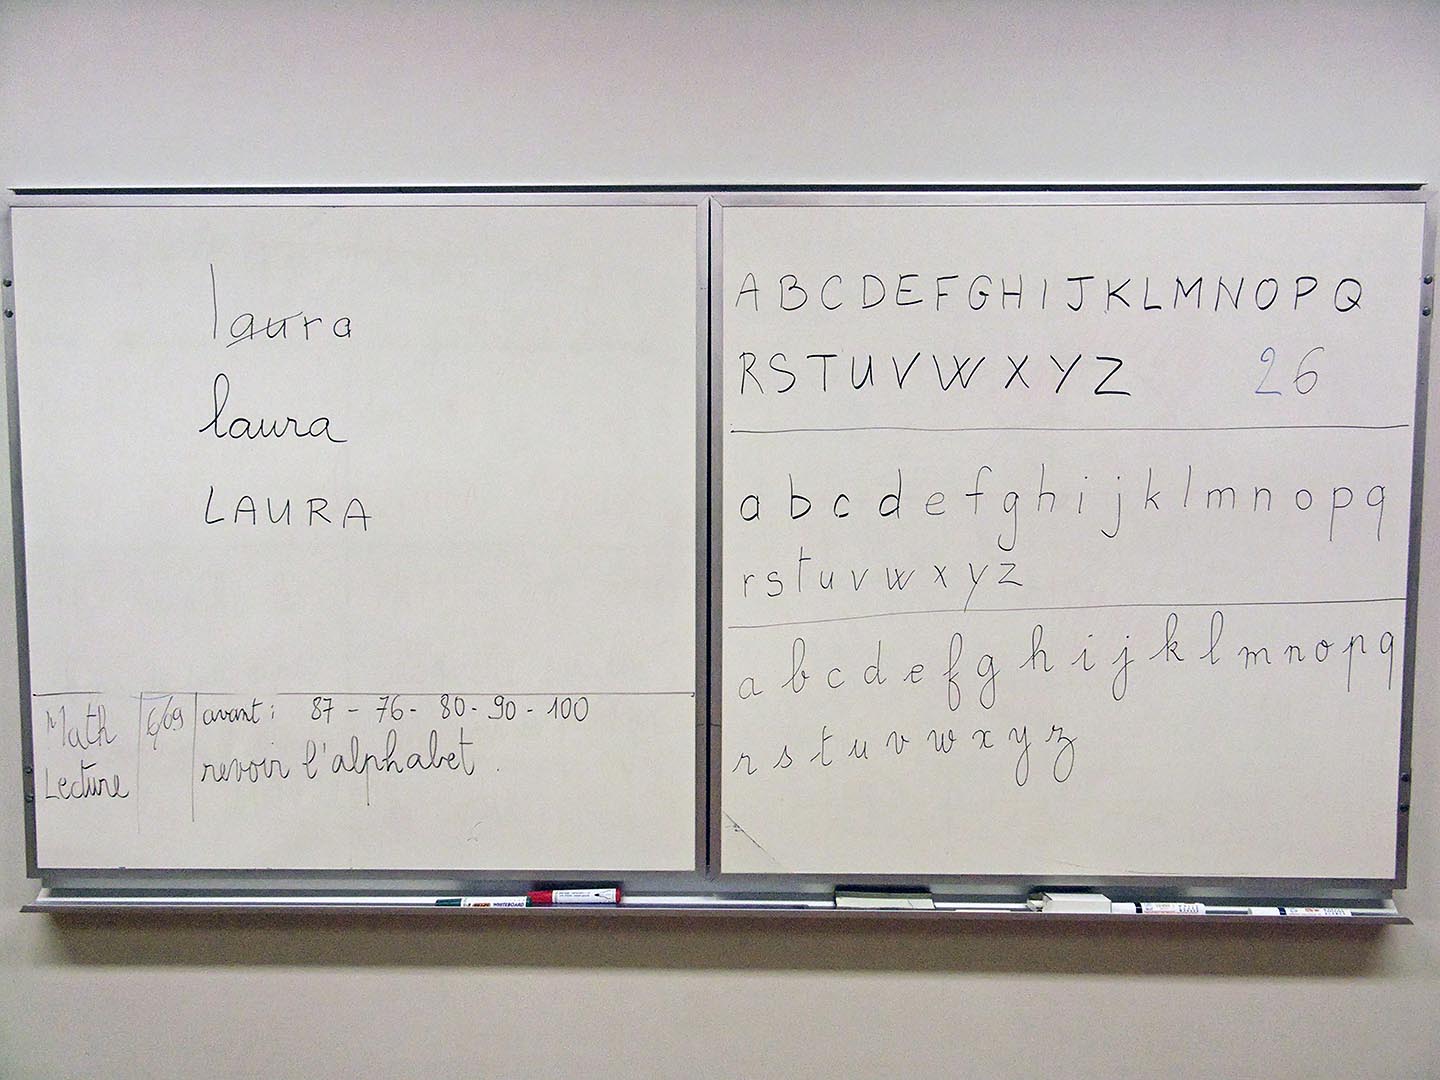 laura
laura
LAURA
Math 6/09 avant : 87 - 76 - 80 - 90 - 100
Lecture revoir l'alphabet.
A B C D E F G H I J K L M N O P Q
R S T U V W X Y Z 26
a b c d e f g h i j k l m n o p q
r s t u v w x y z
a b c d e f g h i j k l m n o p q
r s t u v w x y z
WHITEBOARD